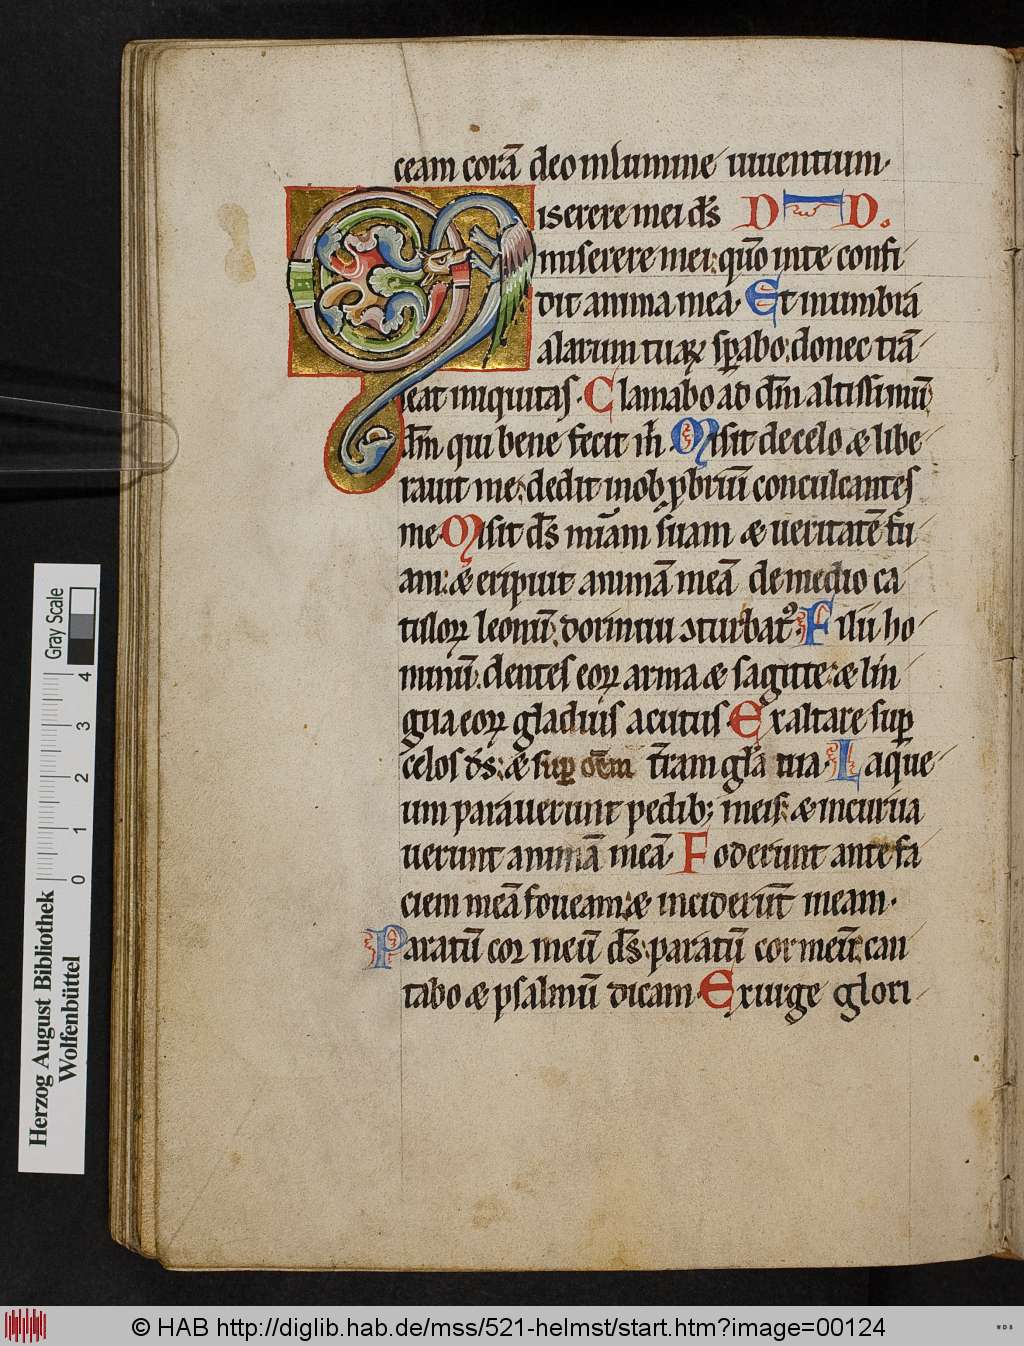 ceam corā deo in lumine uiuentium.
Miserere mei d̄s D D.
miserere mei: qm̄ in te confi
dit anima mea. Et in umbra
alarum tuaꝝ sꝑabo: donec trā
seat iniquitas. Clamabo ad dm̄ altissimū
dm̄ qui bene fecit m̄. Misit de celo & libe
rauit me: dedit in obꝓbriū conculcantes
me. Misit d̄s mīam suam & ueritatē su
am: & eripuit animā meā de medio ca
tuloꝝ leonū: dormiui ɔturbatꝰ. Filii ho
minū: dentes eoꝝ arma & sagitte: & lin
gua eoꝝ gladius acutus. Exaltare suꝑ
celos d̄s: & suꝑ om̄em t̄ram gl̄a tua. Laque
um parauerunt pedib; meis: & incurua
uerunt animā meā. Foderunt ante fa
ciem meā foueam: & inciderūt in eam.
Paratū cor meū d̄s: paratū cor meū: can
tabo & psalmū dicam. Exurge glori
Herzog August Bibliothek
Wolfenbüttel
0 1 2 3 4
Gray Scale
© HAB http://diglib.hab.de/mss/521-helmst/start.htm?image=00124
WDB